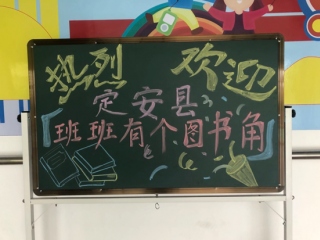 热烈 欢迎
定安县
班班有个图书角